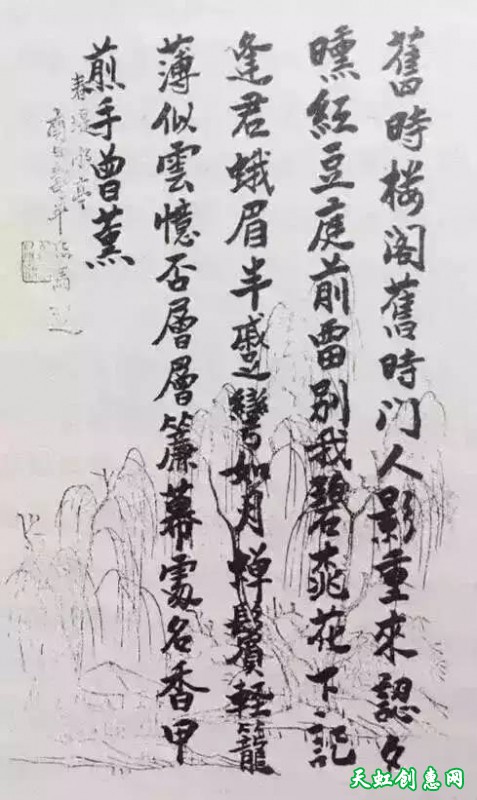 舊時楼阁舊時门人影重來認夕
曛紅豆庭前畱别我碧桃花下記
逢君蛾眉半蹙彎如月蟬鬢輕籠
薄似雲憶否層層簾幕處名香甲
煎手曾薰
春堤
天虹创惠网